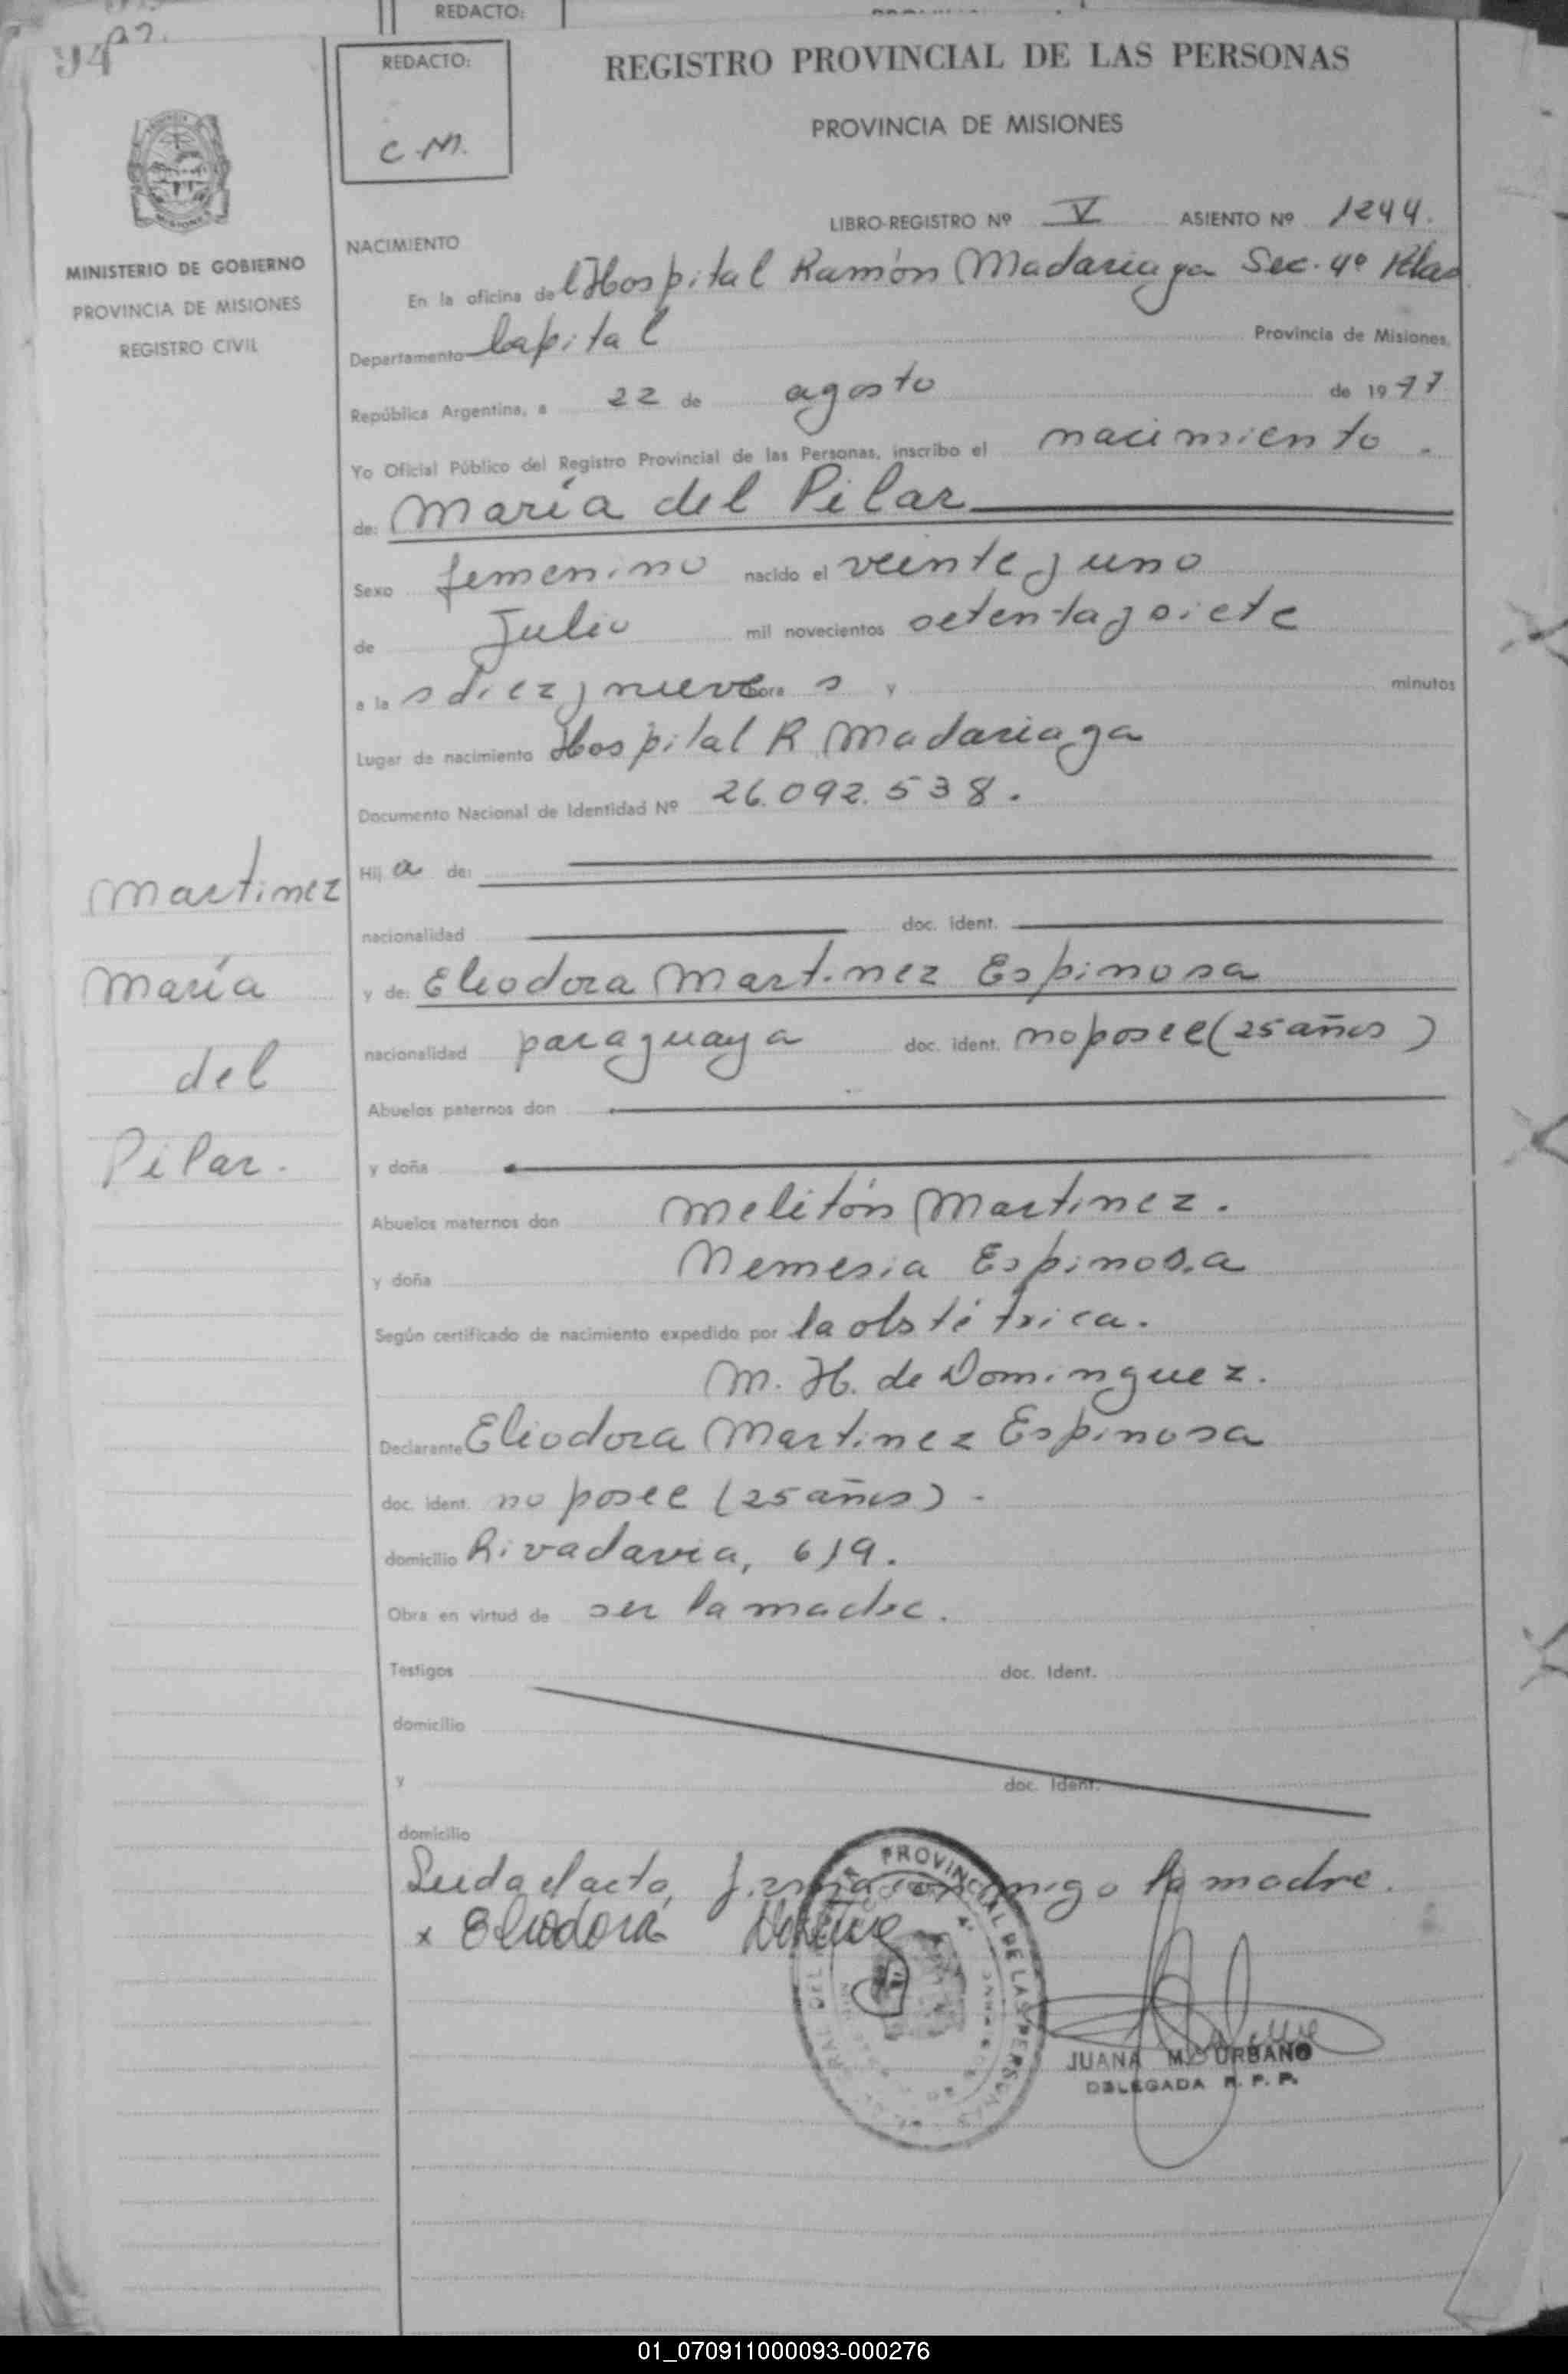 REDACTO:
94
REDACTO:
C.M.
REGISTRO PROVINCIAL DE LAS PERSONAS
PROVINCIA DE MISIONES
MINISTERIO DE GOBIERNO
PROVINCIA DE MISIONES
REGISTRO CIVIL
LIBRO-REGISTRO Nº V ASIENTO Nº 1244.
NACIMIENTO
En la oficina del Hospital Ramón Madariaga Sec. 4º Pdas
Departamento Capital Provincia de Misiones,
República Argentina, a 22 de agosto de 1977
Yo Oficial Público del Registro Provincial de las Personas, inscribo el nacimiento.
de: María del Pilar
Sexo femenino nacido el veinte y uno
de Julio mil novecientos setenta y siete
a la s diez y nueve hora s y minutos
Lugar de nacimiento Hospital R Madariaga
Documento Nacional de Identidad Nº 26.092.538.
Hij a de:
nacionalidad doc. ident.
y de: Eleodora Martinez Espinosa
nacionalidad paraguaya doc. ident. no posee (25 años)
Abuelos paternos don
y doña
Abuelos maternos don Melitón Martinez.
y doña Nemesia Espinosa
Según certificado de nacimiento expedido por la obstétrica.
M. H. de Dominguez.
Declarante Eliodora Martinez Espinosa
doc. ident. no posee (25 años).
domicilio Rivadavia, 619.
Obra en virtud de ser la madre.
Testigos doc. Ident.
domicilio
y doc. Ident.
domicilio
Leida el acta, firma conmigo la madre.
x Eliodora
Martinez
María
del
Pilar.
PROVINCIAL DE LAS PERSONAS
JUANA M. URBANO
DELEGADA R. P. P.
01_070911000093-000276